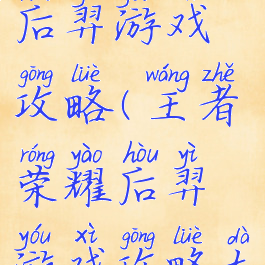 后羿游戏
gōng lüè wáng zhě
攻略(王者
róng yào hòu yì
荣耀后羿
yóu xì gōng lüè dà
游戏攻略大